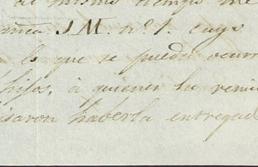 al mismo tiempo me
J M. nº 1. cuyo
lo que se pueda ocurr
hijos, á quienes ho remi
saron haberla entregad